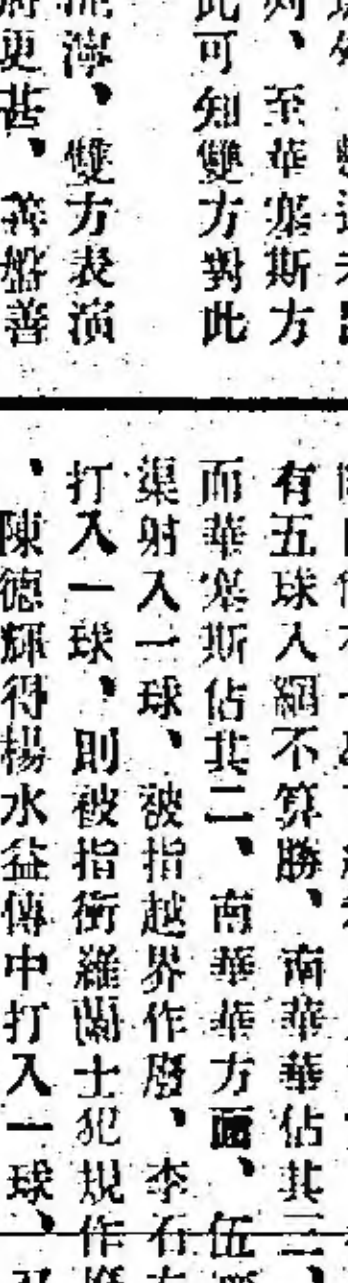 則、至華塞斯方
此可知雙方對此
濘、雙方表演
更甚、善盤善
有五球入網不算勝、南華華佔其三、
而華塞斯佔其二、南華華方面、伍
渠射入一球、被指越界作廢、李石
打入一球、則被指衝羅蘭士犯規作廢
、陳德輝得楊水益傳中打入一球、